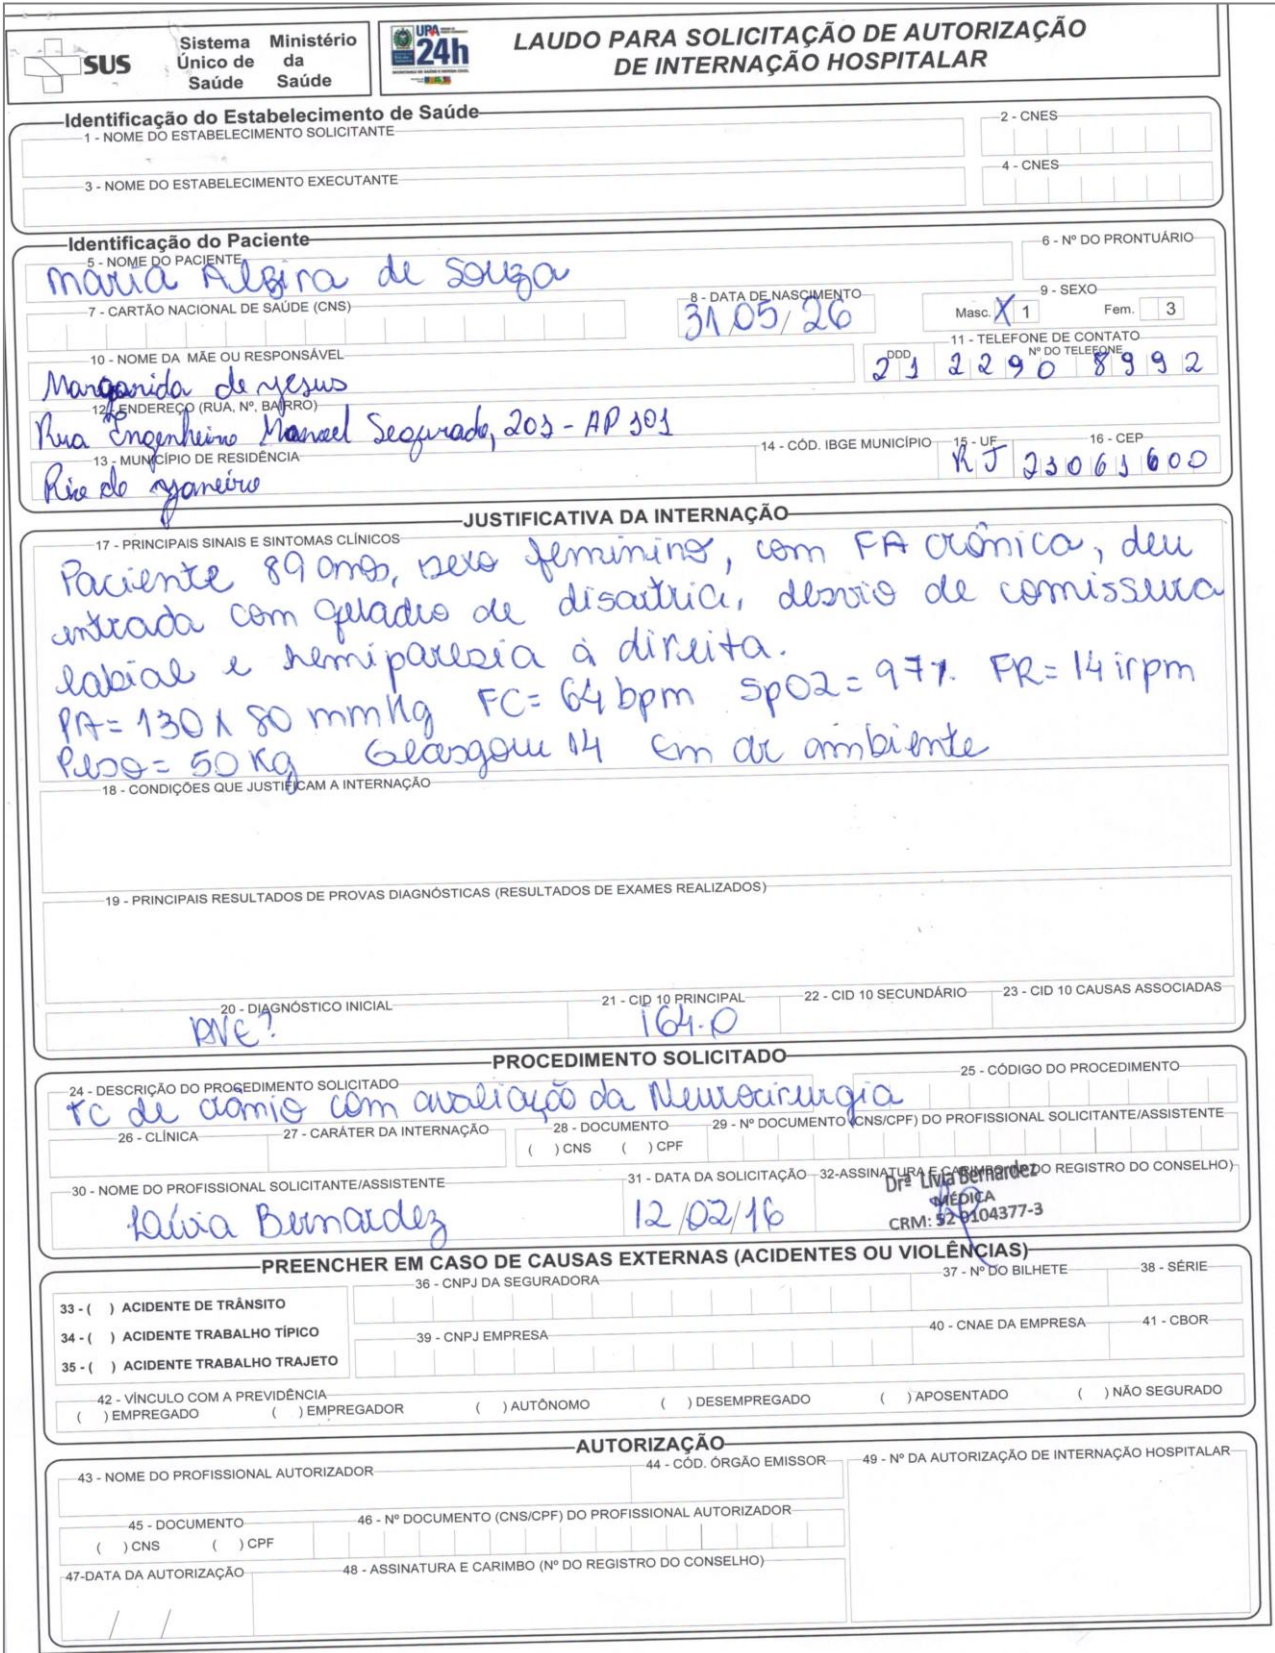 SUS
Sistema Único de Saúde
Ministério da Saúde
UPA 24h
LAUDO PARA SOLICITAÇÃO DE AUTORIZAÇÃO
DE INTERNAÇÃO HOSPITALAR
Identificação do Estabelecimento de Saúde
1 - NOME DO ESTABELECIMENTO SOLICITANTE
2 - CNES
3 - NOME DO ESTABELECIMENTO EXECUTANTE
4 - CNES
Identificação do Paciente
5 - NOME DO PACIENTE
6 - Nº DO PRONTUÁRIO
Maria Alzira de Souza
7 - CARTÃO NACIONAL DE SAÚDE (CNS)
8 - DATA DE NASCIMENTO
31/05/26
9 - SEXO
Masc. X 1 Fem. 3
10 - NOME DA MÃE OU RESPONSÁVEL
Margarida de Jesus
11 - TELEFONE DE CONTATO
DDD Nº DO TELEFONE
21 2290 8992
12 - ENDEREÇO (RUA, Nº, BAIRRO)
Rua Engenheiro Manoel Segurado, 201 - AP 101
13 - MUNICÍPIO DE RESIDÊNCIA
Rio de Janeiro
14 - CÓD. IBGE MUNICÍPIO
15 - UF
RJ
16 - CEP
21061600
JUSTIFICATIVA DA INTERNAÇÃO
17 - PRINCIPAIS SINAIS E SINTOMAS CLÍNICOS
Paciente 89 anos, sexo feminino, com FA crônica, deu
entrada com quadro de disartria, desvio de comissura
labial e hemiparesia à direita.
PA= 130 x 80 mmHg FC= 64 bpm SpO2 = 97% FR= 14 irpm
Peso= 50 Kg Glasgow 14 Em ar ambiente
18 - CONDIÇÕES QUE JUSTIFICAM A INTERNAÇÃO
19 - PRINCIPAIS RESULTADOS DE PROVAS DIAGNÓSTICAS (RESULTADOS DE EXAMES REALIZADOS)
20 - DIAGNÓSTICO INICIAL
AVE?
21 - CID 10 PRINCIPAL
I64.0
22 - CID 10 SECUNDÁRIO
23 - CID 10 CAUSAS ASSOCIADAS
PROCEDIMENTO SOLICITADO
24 - DESCRIÇÃO DO PROCEDIMENTO SOLICITADO
TC de crânio com avaliação da Neurocirurgia
25 - CÓDIGO DO PROCEDIMENTO
26 - CLÍNICA
27 - CARÁTER DA INTERNAÇÃO
28 - DOCUMENTO
( ) CNS ( ) CPF
29 - Nº DOCUMENTO (CNS/CPF) DO PROFISSIONAL SOLICITANTE/ASSISTENTE
30 - NOME DO PROFISSIONAL SOLICITANTE/ASSISTENTE
Lívia Bernardez
31 - DATA DA SOLICITAÇÃO
12/02/16
32-ASSINATURA E CARIMBO (Nº DO REGISTRO DO CONSELHO)
Drª Lívia Bernardez
MÉDICA
CRM: 52 0104377-3
PREENCHER EM CASO DE CAUSAS EXTERNAS (ACIDENTES OU VIOLÊNCIAS)
33 - ( ) ACIDENTE DE TRÂNSITO
34 - ( ) ACIDENTE TRABALHO TÍPICO
35 - ( ) ACIDENTE TRABALHO TRAJETO
36 - CNPJ DA SEGURADORA
37 - Nº DO BILHETE
38 - SÉRIE
39 - CNPJ EMPRESA
40 - CNAE DA EMPRESA
41 - CBOR
42 - VÍNCULO COM A PREVIDÊNCIA
( ) EMPREGADO ( ) EMPREGADOR ( ) AUTÔNOMO ( ) DESEMPREGADO ( ) APOSENTADO ( ) NÃO SEGURADO
AUTORIZAÇÃO
43 - NOME DO PROFISSIONAL AUTORIZADOR
44 - CÓD. ÓRGÃO EMISSOR
49 - Nº DA AUTORIZAÇÃO DE INTERNAÇÃO HOSPITALAR
45 - DOCUMENTO
( ) CNS ( ) CPF
46 - Nº DOCUMENTO (CNS/CPF) DO PROFISSIONAL AUTORIZADOR
47-DATA DA AUTORIZAÇÃO
/ /
48 - ASSINATURA E CARIMBO (Nº DO REGISTRO DO CONSELHO)